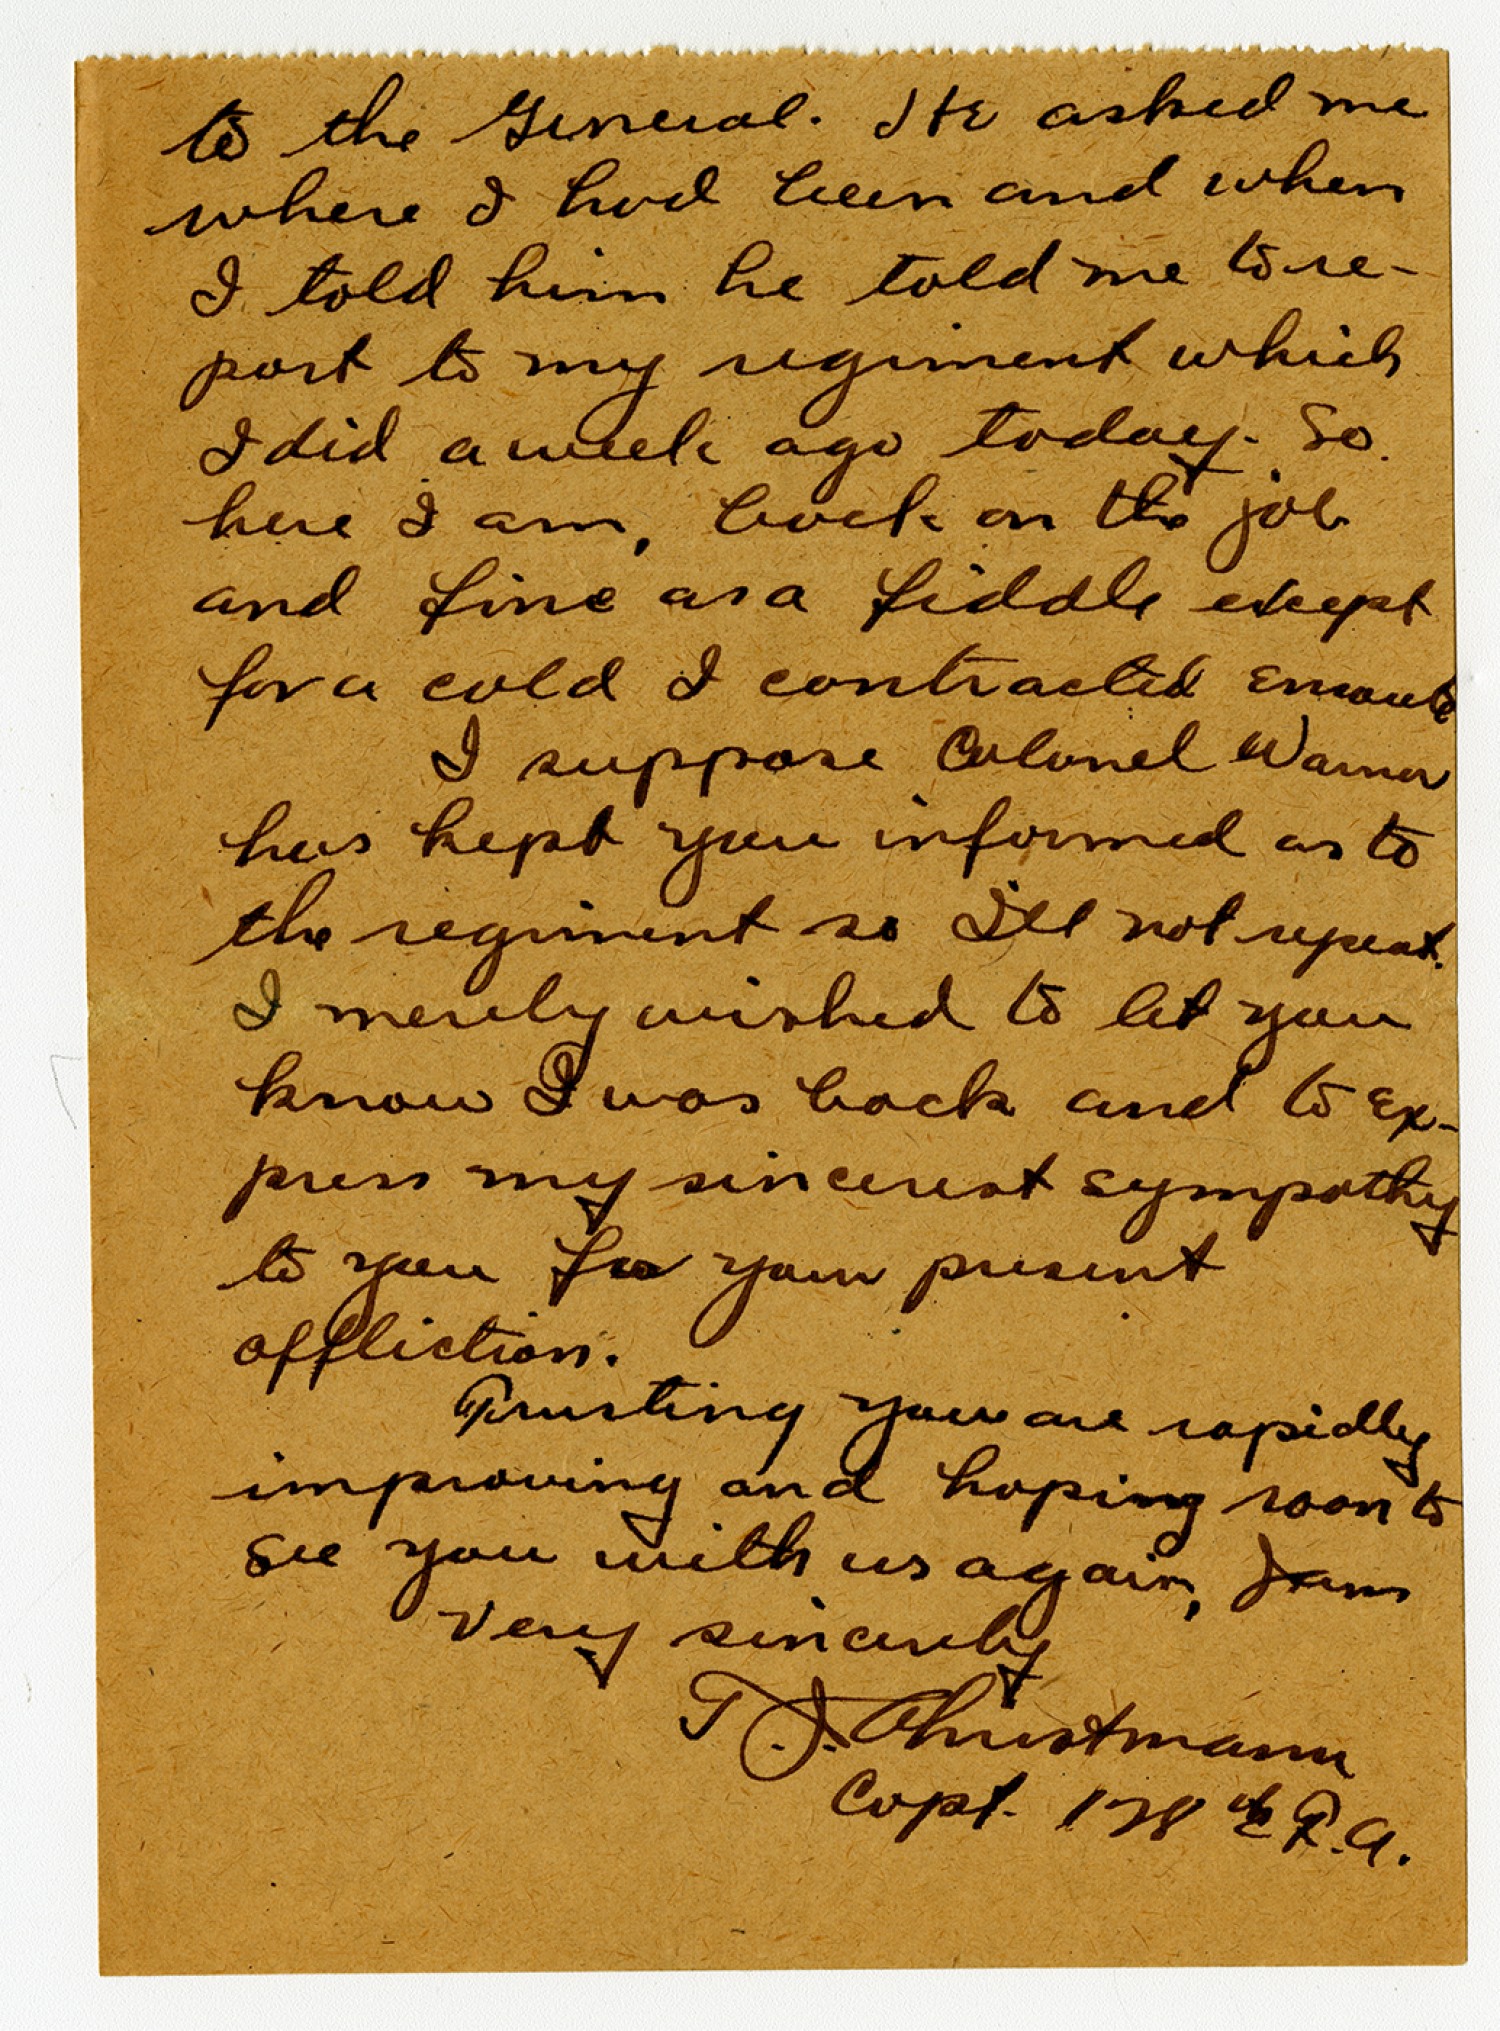 to the General. He asked me
where I had been and when
I told him he told me to re-
port to my regiment which
I did a week ago today. So
here I am, back on the job
and fine as a fiddle except
for a cold I contracted enroute
I suppose Colonel Warner
has kept you informed as to
the regiment so I'll not repeat.
I merely wished to let you
know I was back and to ex-
press my sincerest sympathy
to you for your present
affliction.
Trusting you are rapidly
improving and hoping soon to
see you with us again, I am
Very sincerely
T. J. Christmann
Capt. 128th F.A.